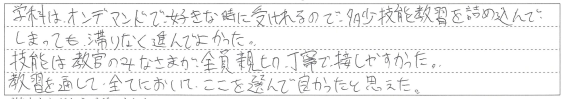 学科は、オンデマンドで好きな時に受けれるので、多少技能教習を詰め込んで
しまっても、滞りなく進んでよかった。
技能は教官のみなさまが、全員親切、丁寧で、接しやすかった。
教習を通して、全てにおいて、ここを選んで良かったと思えた。